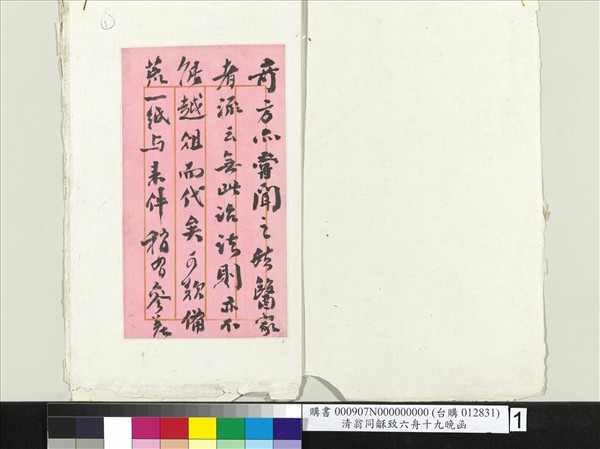 奇方亦嘗聞之然醫家
者流云無此治法則亦不
能越俎而代矣可歎備
一紙与来件稍有參差
①
購書 000907N000000000 (台購 012831)
清翁同龢致六舟十九晚函
1